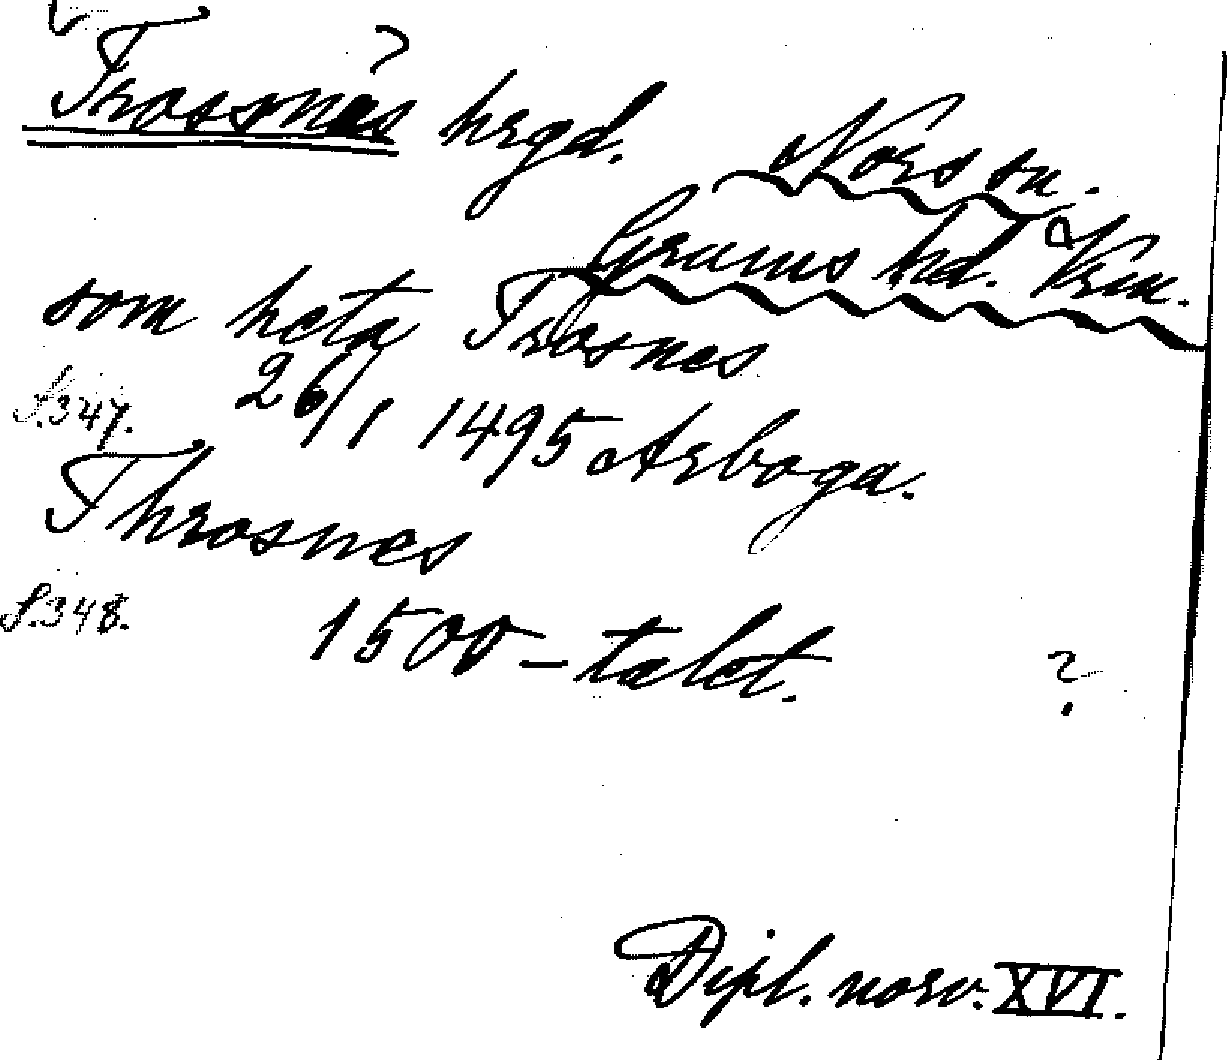 Trosnäs hrgd.
Nors sn.
Grums hd. Vrm.
som heta Trosnes
S. 347. 26/1 1495 Arboga.
Throsnes
S. 348. 1500-talet. ?
Dipl. norv. XVI.